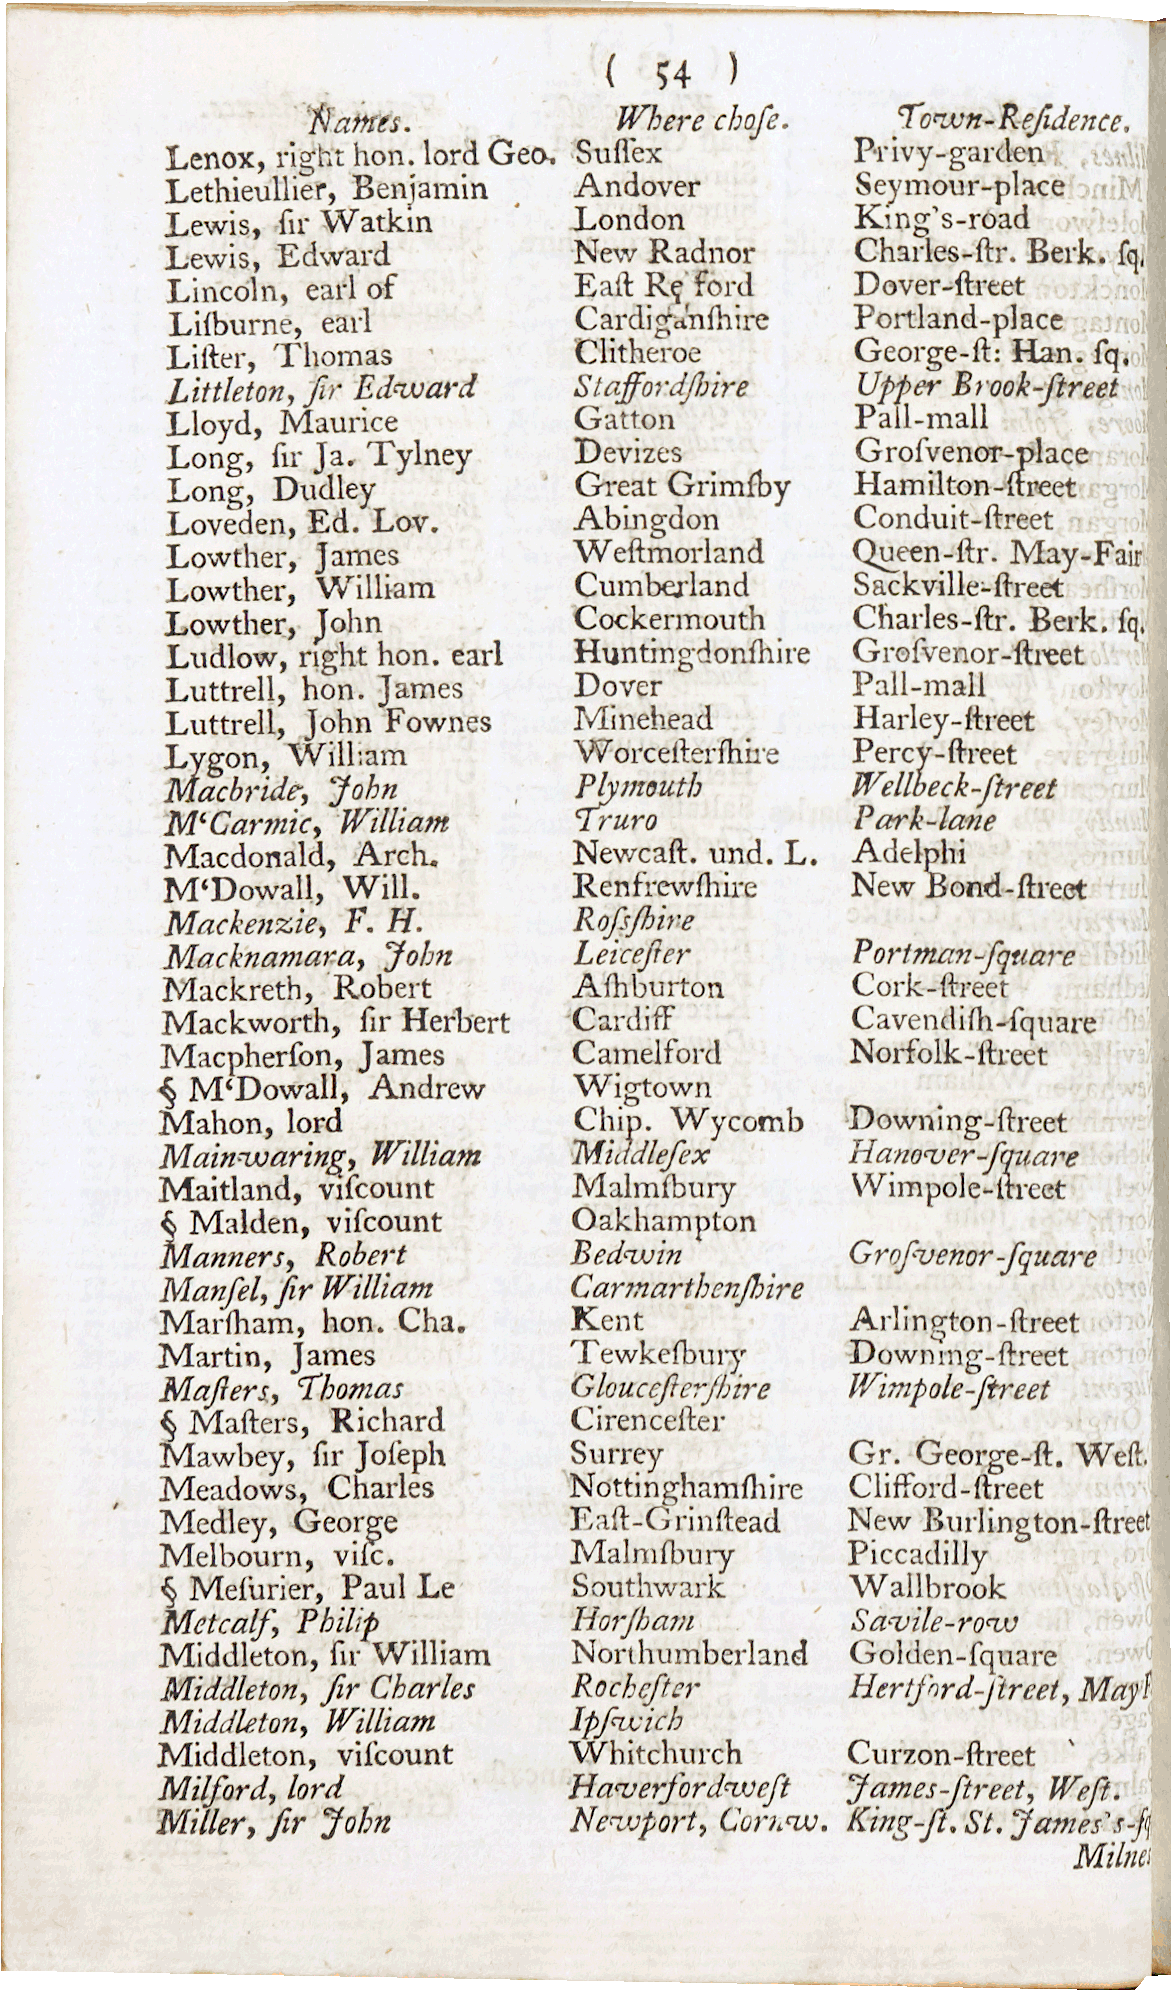 ( 54 )
Names. Where choſe. Town-Reſidence.
Lenox, right hon. lord Geo. Suſſex Privy-garden
Lethieullier, Benjamin Andover Seymour-place
Lewis, ſir Watkin London King's-road
Lewis, Edward New Radnor Charles-ſtr. Berk. ſq.
Lincoln, earl of Eaſt Re ford Dover-ſtreet
Liſburne, earl Cardiganſhire Portland-place
Liſter, Thomas Clitheroe George-ſt: Han. ſq.
Littleton, ſir Edward Staffordſhire Upper Brook-ſtreet
Lloyd, Maurice Gatton Pall-mall
Long, ſir Ja. Tylney Devizes Groſvenor-place
Long, Dudley Great Grimſby Hamilton-ſtreet
Loveden, Ed. Lov. Abingdon Conduit-ſtreet
Lowther, James Weſtmorland Queen-ſtr. May-Fair
Lowther, William Cumberland Sackville-ſtreet
Lowther, John Cockermouth Charles-ſtr. Berk. ſq.
Ludlow, right hon. earl Huntingdonſhire Groſvenor-ſtreet
Luttrell, hon. James Dover Pall-mall
Luttrell, John Fownes Minehead Harley-ſtreet
Lygon, William Worceſterſhire Percy-ſtreet
Macbride, John Plymouth Wellbeck-ſtreet
M‘Carmic, William Truro Park-lane
Macdonald, Arch. Newcaſt. und. L. Adelphi
M‘Dowall, Will. Renfrewſhire New Bond-ſtreet
Mackenzie, F. H. Roſsſhire
Macknamara, John Leiceſter Portman-ſquare
Mackreth, Robert Aſhburton Cork-ſtreet
Mackworth, ſir Herbert Cardiff Cavendiſh-ſquare
Macpherſon, James Camelford Norfolk-ſtreet
§ M‘Dowall, Andrew Wigtown
Mahon, lord Chip. Wycomb Downing-ſtreet
Mainwaring, William Middleſex Hanover-ſquare
Maitland, viſcount Malmſbury Wimpole-ſtreet
§ Malden, viſcount Oakhampton
Manners, Robert Bedwin Groſvenor-ſquare
Manſel, ſir William Carmarthenſhire
Marſham, hon. Cha. Kent Arlington-ſtreet
Martin, James Tewkeſbury Downing-ſtreet
Maſters, Thomas Glouceſterſhire Wimpole-ſtreet
§ Maſters, Richard Cirenceſter
Mawbey, ſir Joſeph Surrey Gr. George-ſt. Weſt.
Meadows, Charles Nottinghamſhire Clifford-ſtreet
Medley, George Eaſt-Grinſtead New Burlington-ſtreet
Melbourn, viſc. Malmſbury Piccadilly
§ Meſurier, Paul Le Southwark Wallbrook
Metcalf, Philip Horſham Savile-row
Middleton, ſir William Northumberland Golden-ſquare
Middleton, ſir Charles Rocheſter Hertford-ſtreet, May
Middleton, William Ipſwich
Middleton, viſcount Whitchurch Curzon-ſtreet
Milford, lord Haverfordweſt James-ſtreet, Weſt.
Miller, ſir John Newport, Cornw. King-ſt. St. James's-ſq
Milner